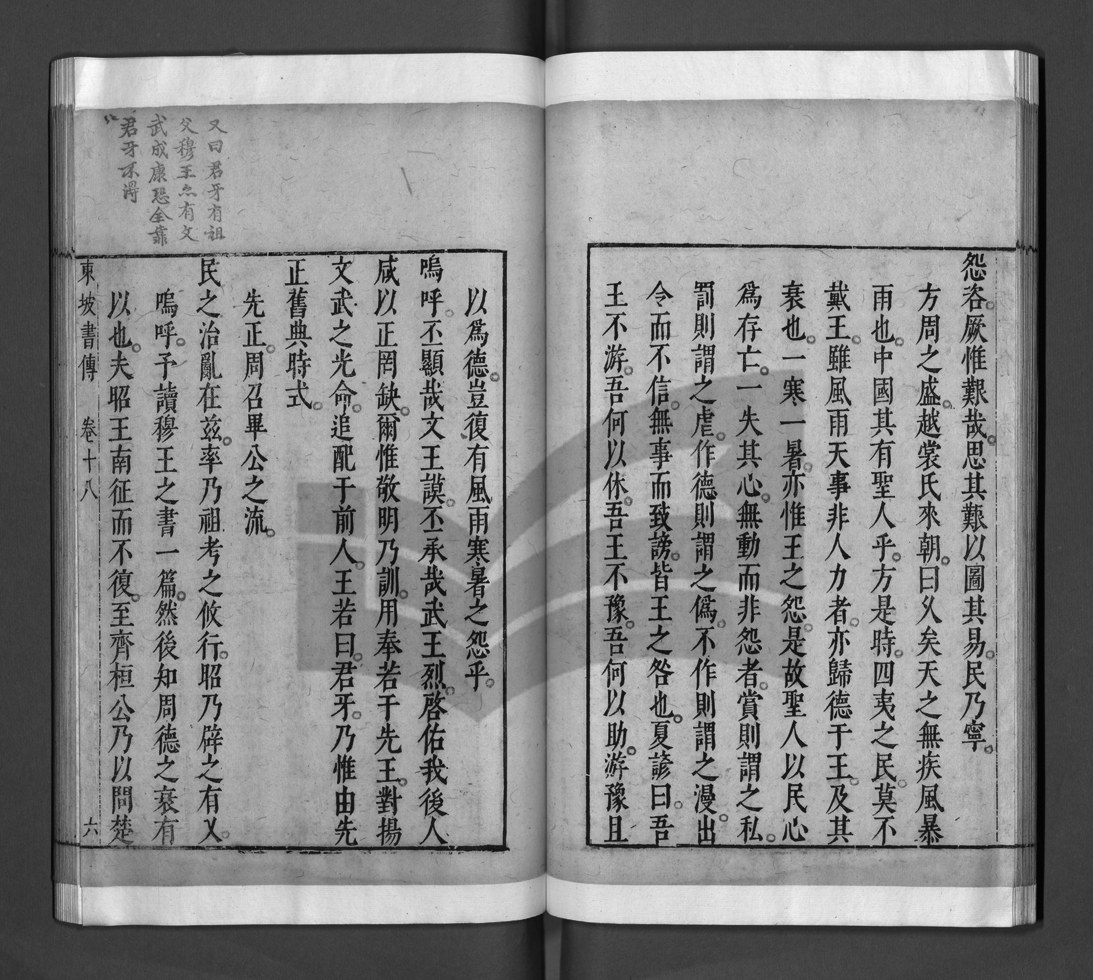 怨咨。厥惟艱哉。思其艱以圖其易。民乃寧。
方周之盛。越裳氏來朝。曰久矣天之無疾風暴
雨也。中國其有聖人乎。方是時。四夷之民。莫不
戴王。雖風雨天事非人力者。亦歸德于王。及其
衰也。一寒一暑。亦惟王之怨。是故聖人以民心
爲存亡。一失其心。無動而非怨者。賞則謂之私。
罰則謂之虐。作德則謂之僞。不作則謂之漫。出
令而不信。無事而致謗。皆王之咎也。夏諺曰。吾
王不游。吾何以休。吾王不豫。吾何以助。游豫且
以爲德。豈復有風雨寒暑之怨乎。
嗚呼。丕顯哉文王謨。丕承哉武王烈。啓佑我後人
咸以正罔缺。爾惟敬明乃訓。用奉若于先王。對揚
文武之光命。追配于前人。王若曰。君牙。乃惟由先
正舊典時式。
先正。周召畢公之流。
民之治亂在茲。率乃祖考之攸行。昭乃辟之有乂。
嗚呼。予讀穆王之書一篇。然後知周德之衰有
以也。夫昭王南征而不復。至齊桓公乃以問楚
東坡書傳 卷十八 六
又曰君牙有祖
父穆王亦有文
武成康恐全靠
君牙不得